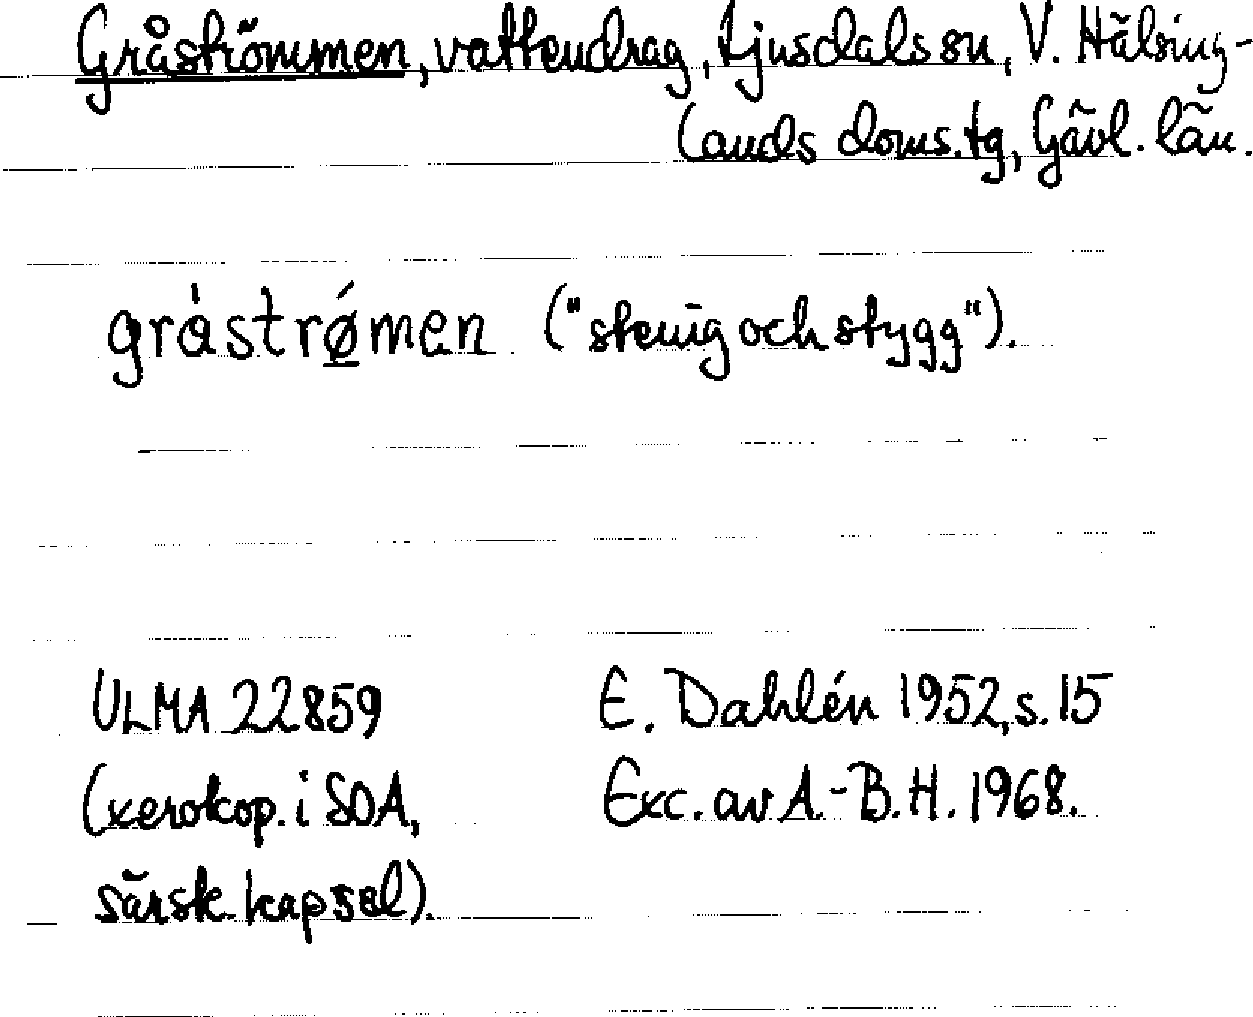 Gråströmmen, vattendrag, Ljusdals sn, V. Hälsing-
lands doms.tg, Gävl. län.
gråstrǿ̲men ("stenig och stygg").
ULMA 22859 E. Dahlén 1952, s. 15
(xerokop. i SOA, Exc. av A.-B. H. 1968.
särsk. kapsel).